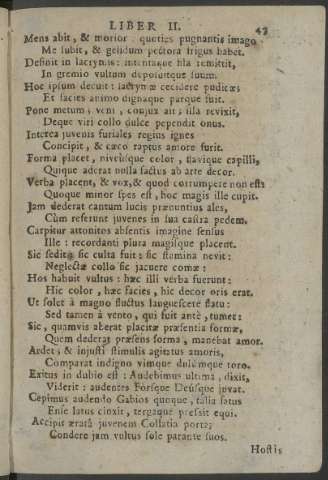 LIBER II. 43
Mens abit, & morior : quoties pugnantis imago
Me subit, & gelidum pectora frigus habet.
Desinit in lacrymis: intentaque fila remittit,
In gremio vultum deposuitque suum.
Hoc ipsum decuit: lacrymæ cecidere pudicæ;
Et facies animo dignaque parque fuit.
Pone metum; veni, conjux ait; illa revixit,
Deque viri collo dulce pependit onus.
Interea juvenis furiales regius ignes
Concipit, & cæco raptus amore furit.
Forma placet, niveusque color, flavique capilli,
Quique aderat nulla factus ab arte decor.
Verba placent, & vox, & quod corrumpere non est:
Quoque minor spes est, hoc magis ille cupit.
Jam dederat cantum lucis prænuntius ales,
Cùm referunt juvenes in sua castra pedem.
Carpitur attonitos absentis imagine sensus
Ille : recordanti plura magisque placent.
Sic sedit: sic culta fuit: sic stamina nevit:
Neglectæ collo sic jacuere comæ:
Hos habuit vultus: hæc illi verba fuerunt:
Hic color, hæc facies, hic decor oris erat.
Ut solet à magno fluctus languescere flatu:
Sed tamen à vento, qui fuit antè, tumet:
Sic, quamvis aberat placitæ præsentia formæ,
Quem dederat præsens forma, manebat amor.
Ardet; & injusti stimulis agitatus amoris,
Comparat indigno vimque dolumque toro.
Exitus in dubio est : Audebimus ultima, dixit,
Viderit : audentes Forsque Deúsque juvat.
Cepimus audendo Gabios quoque, talia fatus
Ense latus cinxit, tergaque pressit equi.
Accipit æratâ juvenem Collatia portâ;
Condere jam vultus sole parante suos.
Hostis